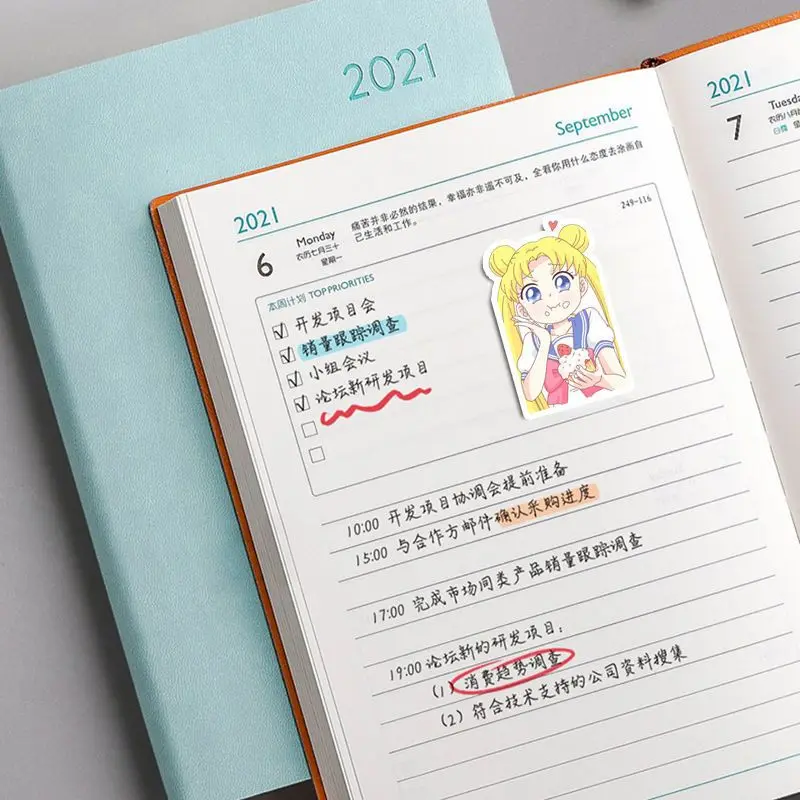 2021
September
2021
6
Monday
农历七月三十
星期一
痛苦并非必然的结果，幸福亦非遥不可及，全看你用什么态度去涂画自
己生活和工作。
249-116
本周计划 TOP PRIORITIES
开发项目会
销量跟踪调查
小组会议
论坛新研发项目
10:00 开发项目协调会提前准备
15:00 与合作方邮件确认采购进度
17:00 完成市场同类产品销量跟踪调查
19:00 论坛新的研发项目：
(1) 消费趋势调查
(2) 符合技术支持的公司资料搜集
2021
7
Tuesda
农历八月
白露 星